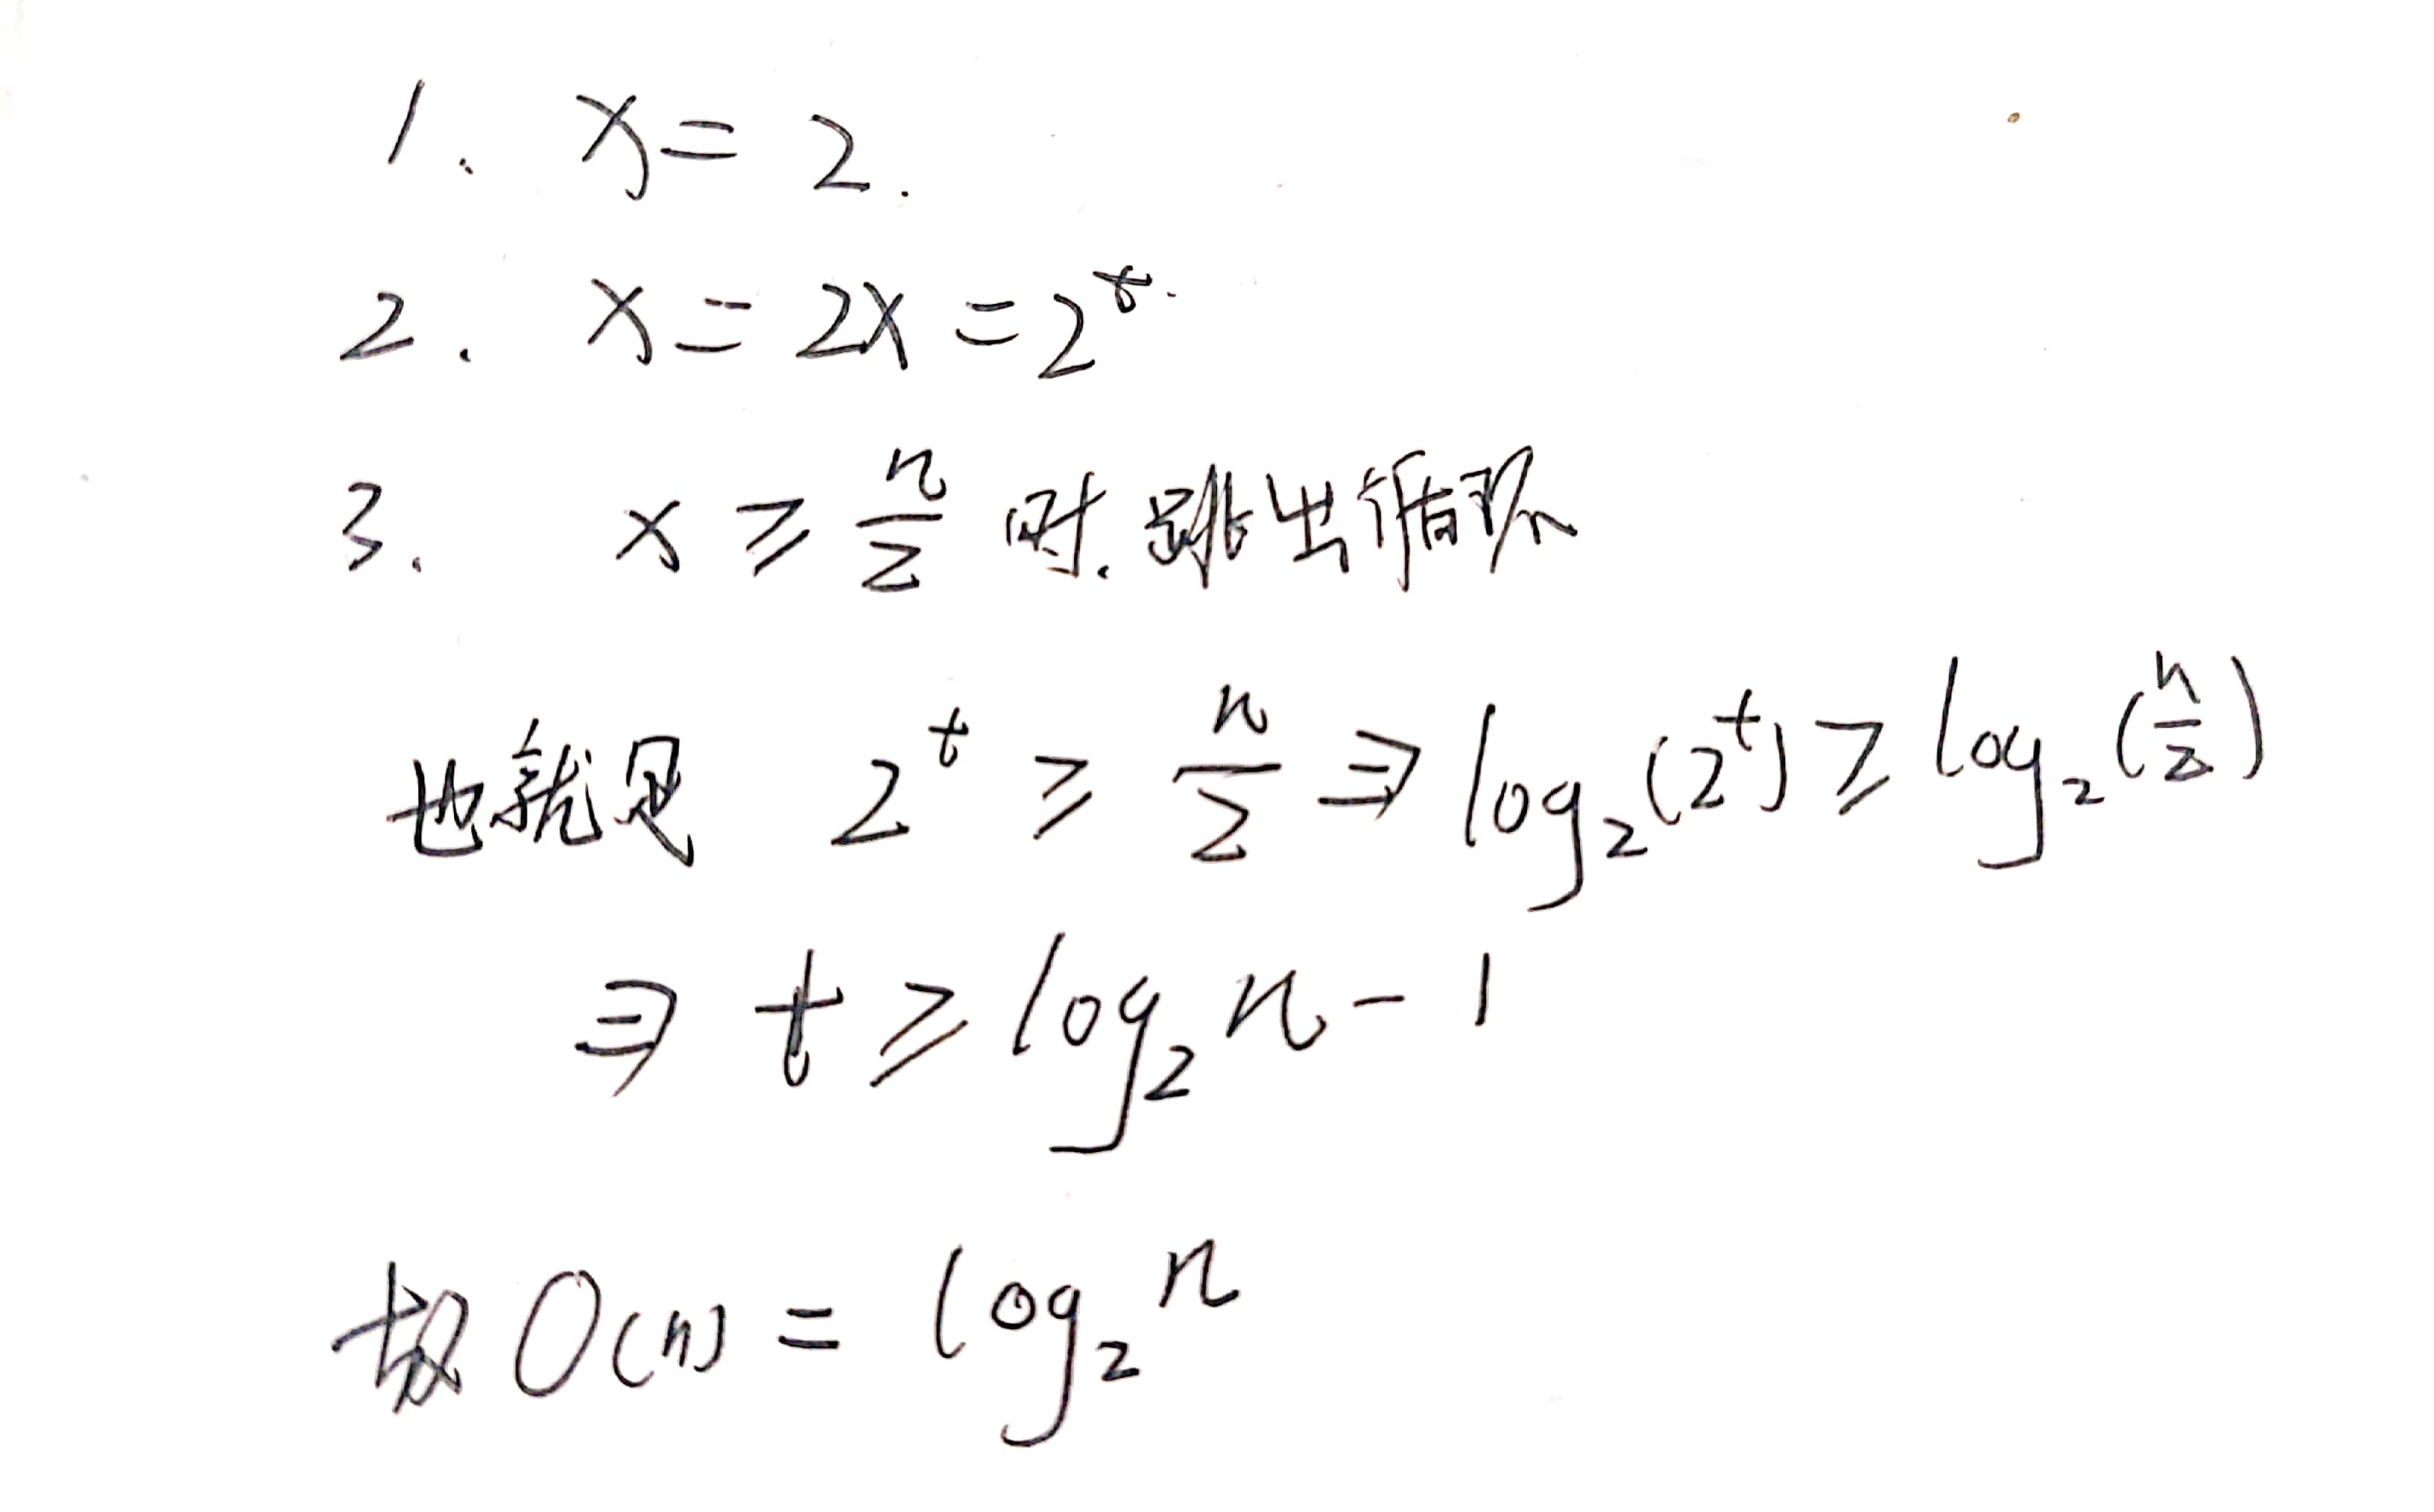 1. x = 2.
2. x = 2x = 2^t.
3. x ≥ n/2 时. 跳出循环
也就是 2^t ≥ n/2 ⇒ log₂(2^t) ≥ log₂(n/2)
⇒ t ≥ log₂n - 1
故 O(n) = log₂n